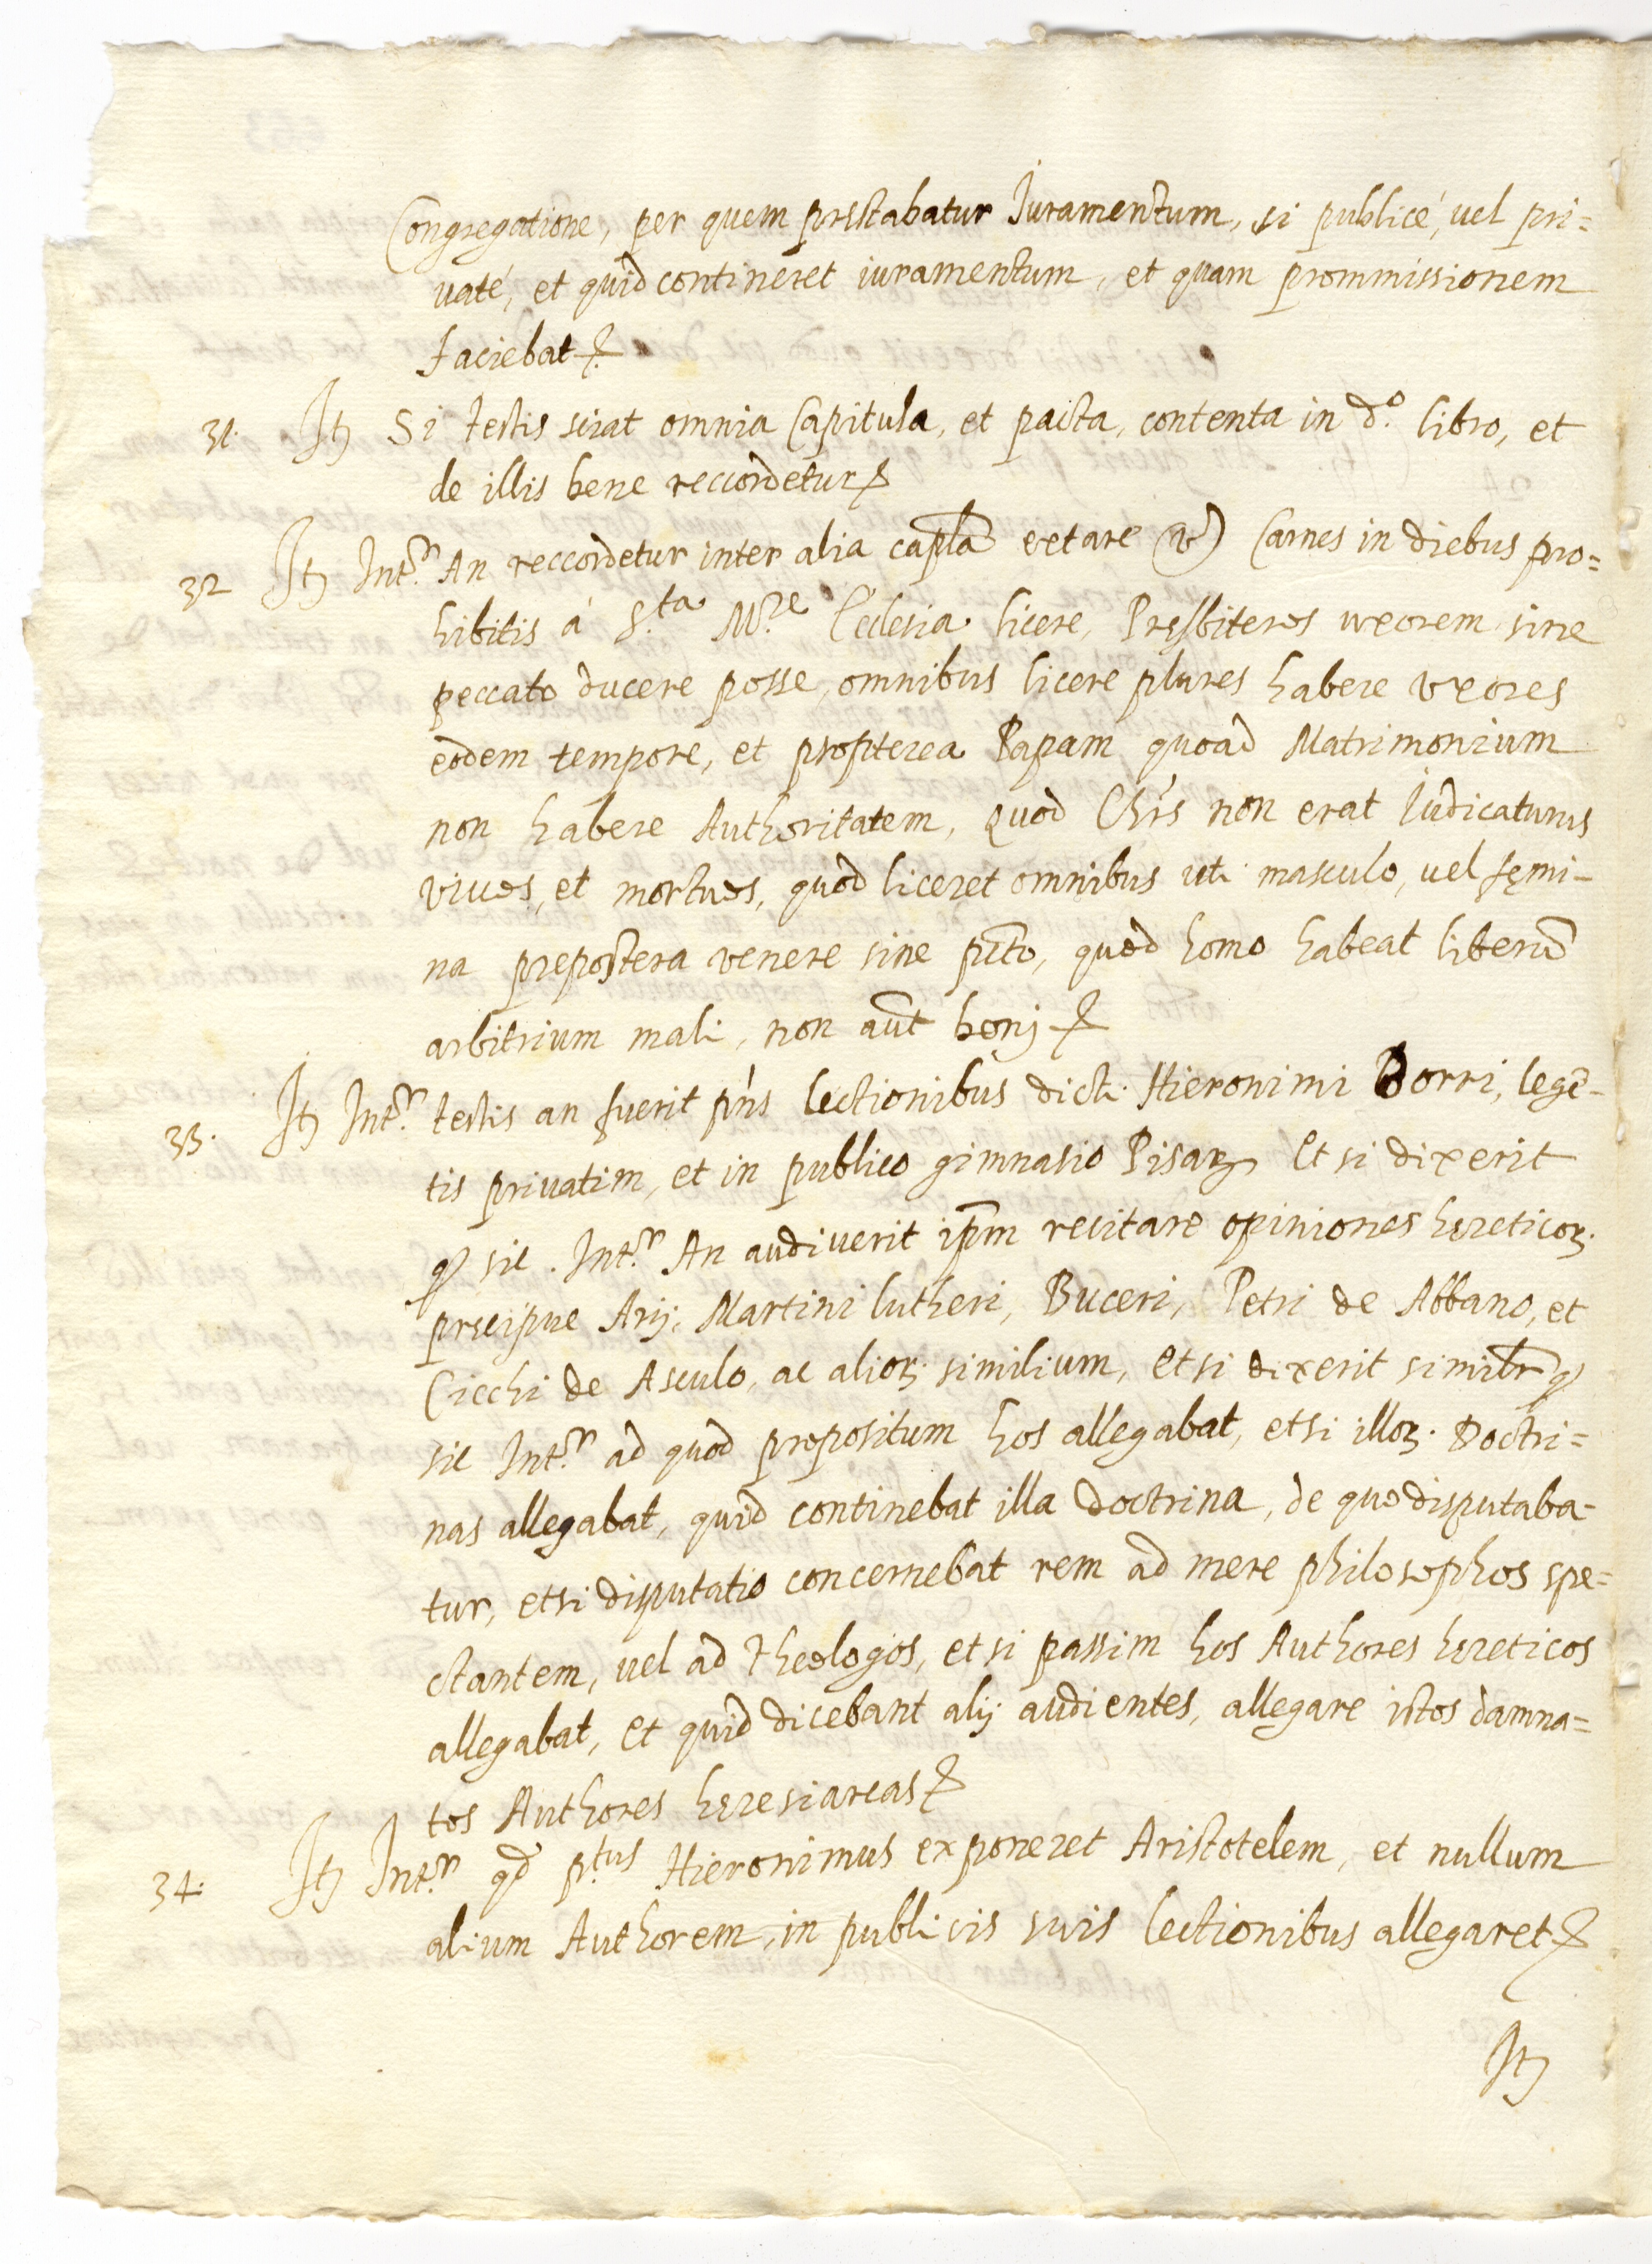 Congregatione, per quem prestabatur Iuramentum, si publicé, uel pri=
uaté, et quid contineret iuramentum, et quam prommissionem
faciebat &.
31. Itẽ Si testis sciat omnia Capitula, et pacta, contenta in d.º libro, et
de illis bene reccordetur &
32 Itẽ Int.r An reccordetur inter alia capl̃a Carnes in diebus pro=
hibitis á S.ta M.re Ecclesia licere, Presbiteros uxorem sine
peccato ducere posse, omnibus licere plures habere uxores
eodem tempore, et propterea Papam quoad Matrimonium
non habere Authoritatem, Quod Chr̃s non erat Iudicaturus
viuos, et mortuos, quod liceret omnibus uti masculo, uel fęmi-
na prepostera venere sine pct̃o, quod homo habeat liberũ
arbitrium mali, non aũt bonj &
33. Itẽ Int.r testis an fuerit pñs lectionibus dicti Hieronimi Borri, legẽ-
tis priuatim, et in publico gimnasio Pisarꝝ Et si dixerit
ꝙ sic. Int.r An audiuerit ip̃m recitare opiniones hereticoꝝ.
precipue Arij, Martini lutheri, Buceri, Petri de Abbano, et
Cicchi de Asculo, ac alioꝝ. similium, et si dixerit similr̃ ꝙ
sic Int.r ad quod propositum hos allegabat, et si illoꝝ. Doctri=
nas allegabat, quid continebat illa doctrina, de quo disputaba-
tur, et si disputatio concernebat rem ad mere philosophos spe=
ctantem, uel ad Theologos, et si passim hos Authores hereticos
allegabat, et quid dicebant alij audientes, allegare istos damna=
tos Authores heresiarcas &
34. Itẽ Int.r qd̃ p.tus Hieronimus exponeret Aristotelem, et nullum
alium Authorem, in publicis suis lectionibus allegaret &
Itẽ